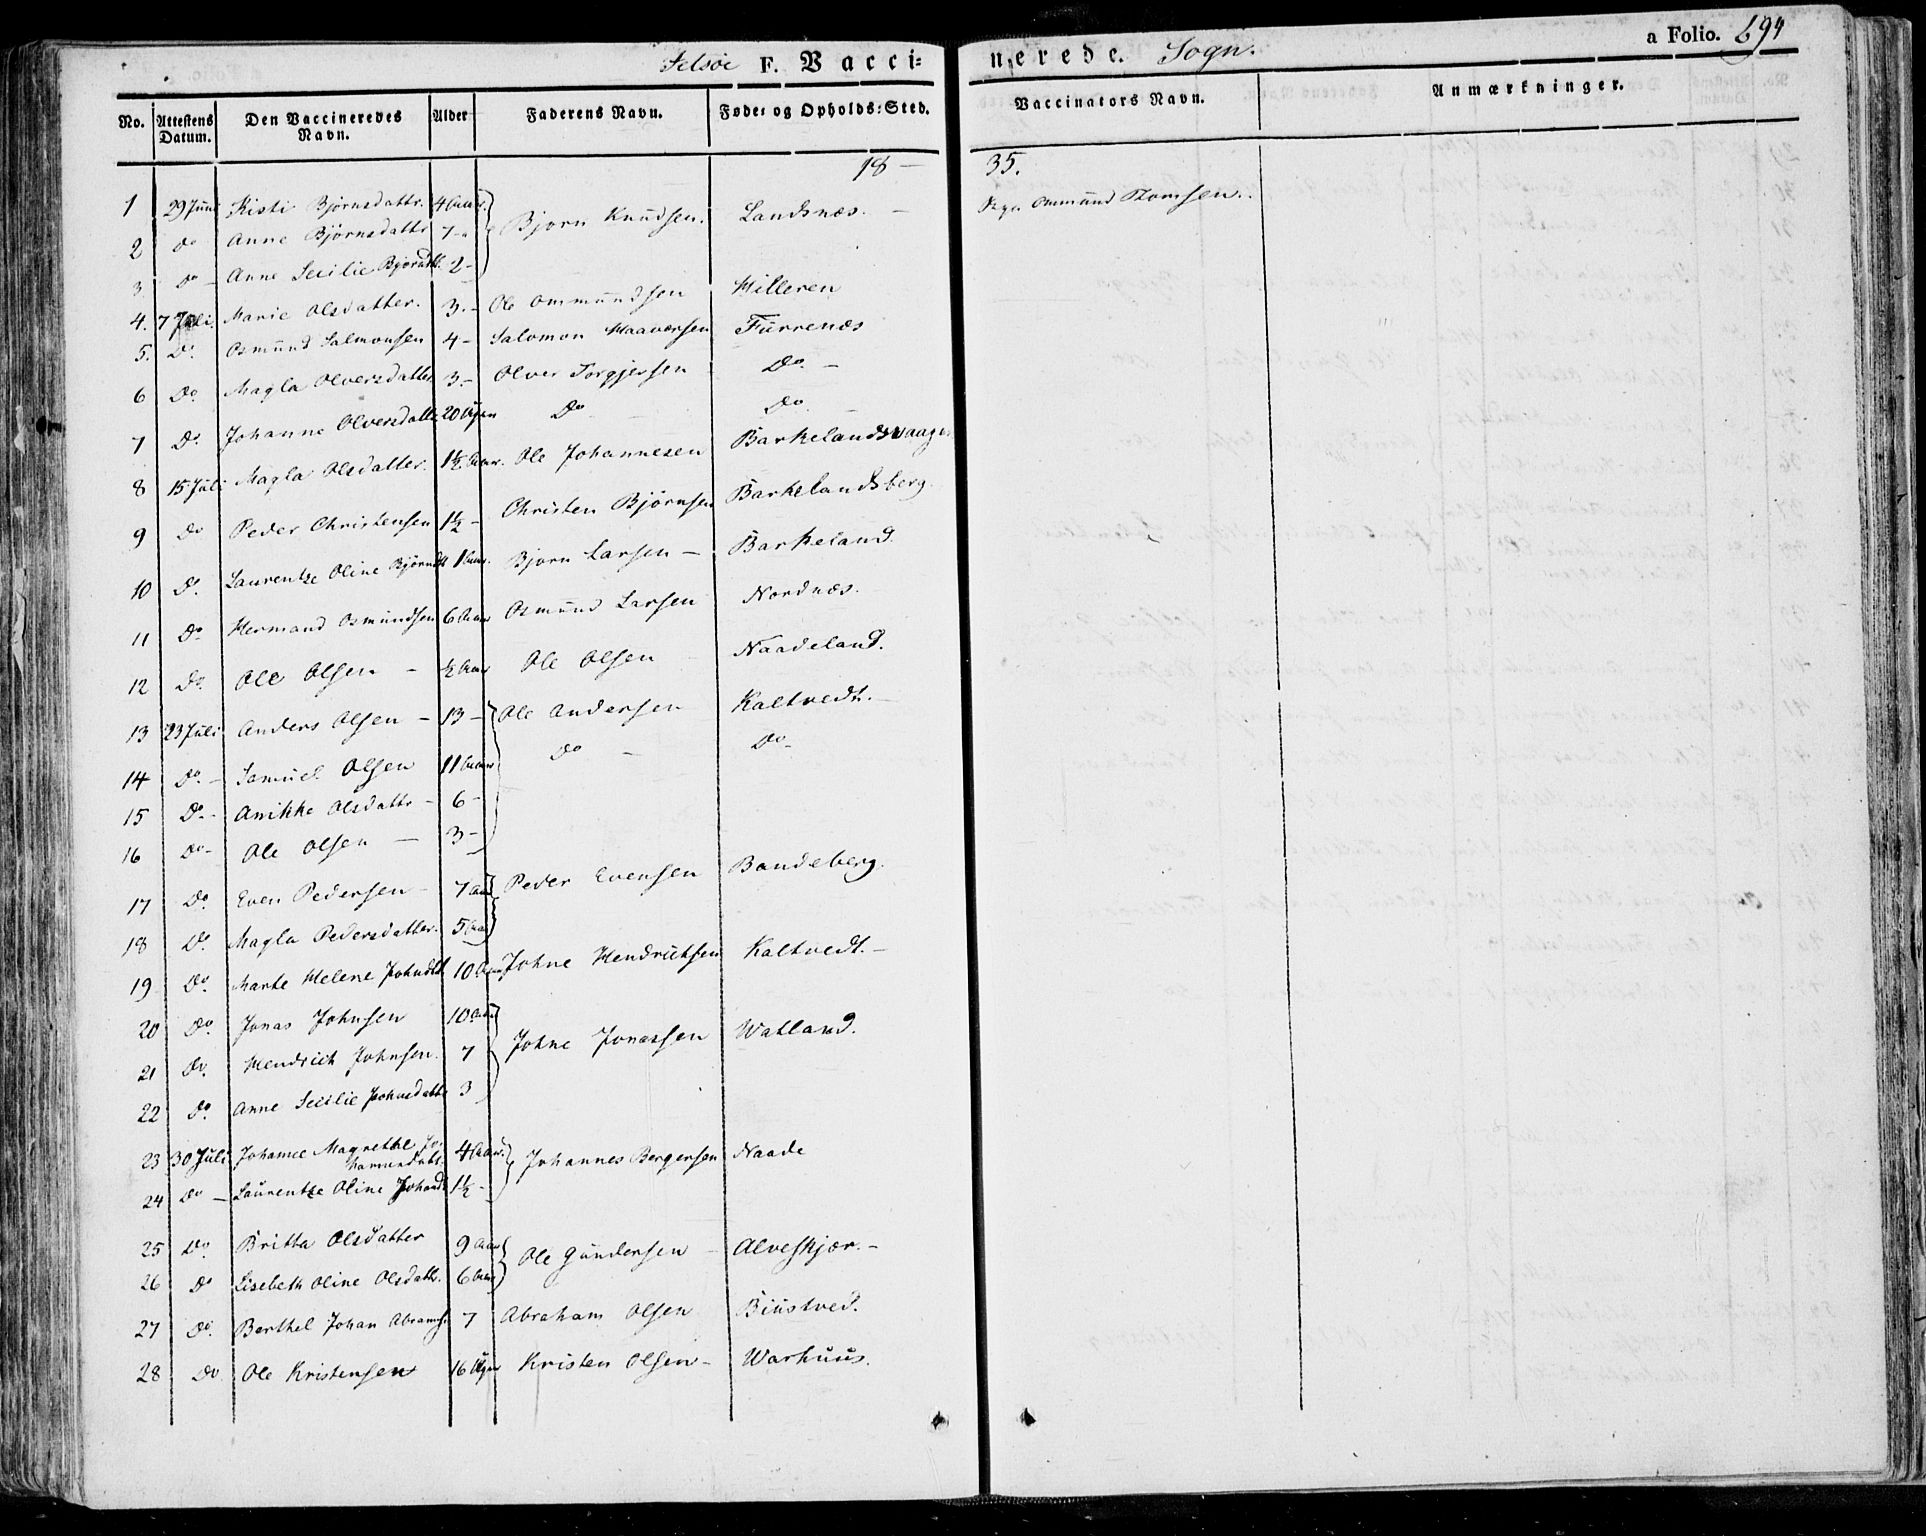 Jelsöe F. Vaccinerede. Sogn. a Folio. 694
No. Attestens Datum. Den Vaccineredes Navn. Alder Faderens Navn. Føde- og Opholds-Sted. Vaccinators Navn. Anmærkninger.
18 - 35.
1 29 Juni Kisti Bjørnsdattr. 4 Aar. Bjørn Knudsen. Landsnæs. - Ommund Tomsen.
2 do Anne Bjørnsdattr 7 -
3 do - Anne Secilie Bjørnsdt. 2 -
4. 7 Juli. Marie Olsdatter. 3. - Ole Ommundsen Hilleren
5. Do. Osmund Salmonsen 4 - Salomon Haavorsen Furrenæs
6 Do. Magla Olversdatter 3. - Olver Torgjersen Do. -
7 Do. Johanne Olversdattr 20 Ugen Do - Do.
8 15 Juli Magla Olsdatter. 1½ Aar. Ole Johannesen Barkelandsvaagen
9 Do Peder Christensen 1½ - Christen Bjørnsen Barkelandsberg.
10 Do. Laurentze Oline Bjørnsdt 1 Aar. Bjørn Larsen - Barkeland
11 Do. Hermand Osmundsen 6 Aar Osmund Larsen Nordnæs.
12 Do. Ole Olsen - ½ Aar Ole Olsen Naadeland.
13 23 Juli Anders Olsen - 13 - Ole Andersen Kaltvedt. -
14 Do. - Samuel Olsen 11 Aar Do - Do -
15 Do. - Anikke Olsdattr - 6 -
16 Do - Ole Olsen - 3 -
17 Do. Even Pedersen - 7 Aar Peder Evensen Bandeberg.
18 Do. Magla Pedersdatter. 5 Aar
19 Do. Marte Helene Johnsdt 10 Aar Johne Hendrichsen Kaltvedt. -
20 Do. Jonas Johnsen 10 Aar Johne Jonassen Watland.
21 Do. Hendrich Johnsen. 7
22 Do. Anne Secilie Johnsdattr 3
23 30 Juli Johanne Magrethe Johannesdatr. 4 Aar. Johannes Bergersen Naade
24 Do - Laurentze Oline Johansd 1½ -
25 Do. Britta Olsdatter 9 Aar Ole Gundersen - Alveskjær. -
26 Do Lisebeth Oline Olsdattr. 6 Aar
27 Do. Berthel Johan Abrams. 7 Abraham Olsen Biustved.
28 Do Ole Kristensen 16 Ugen Kristen Olsen - Warhuus.